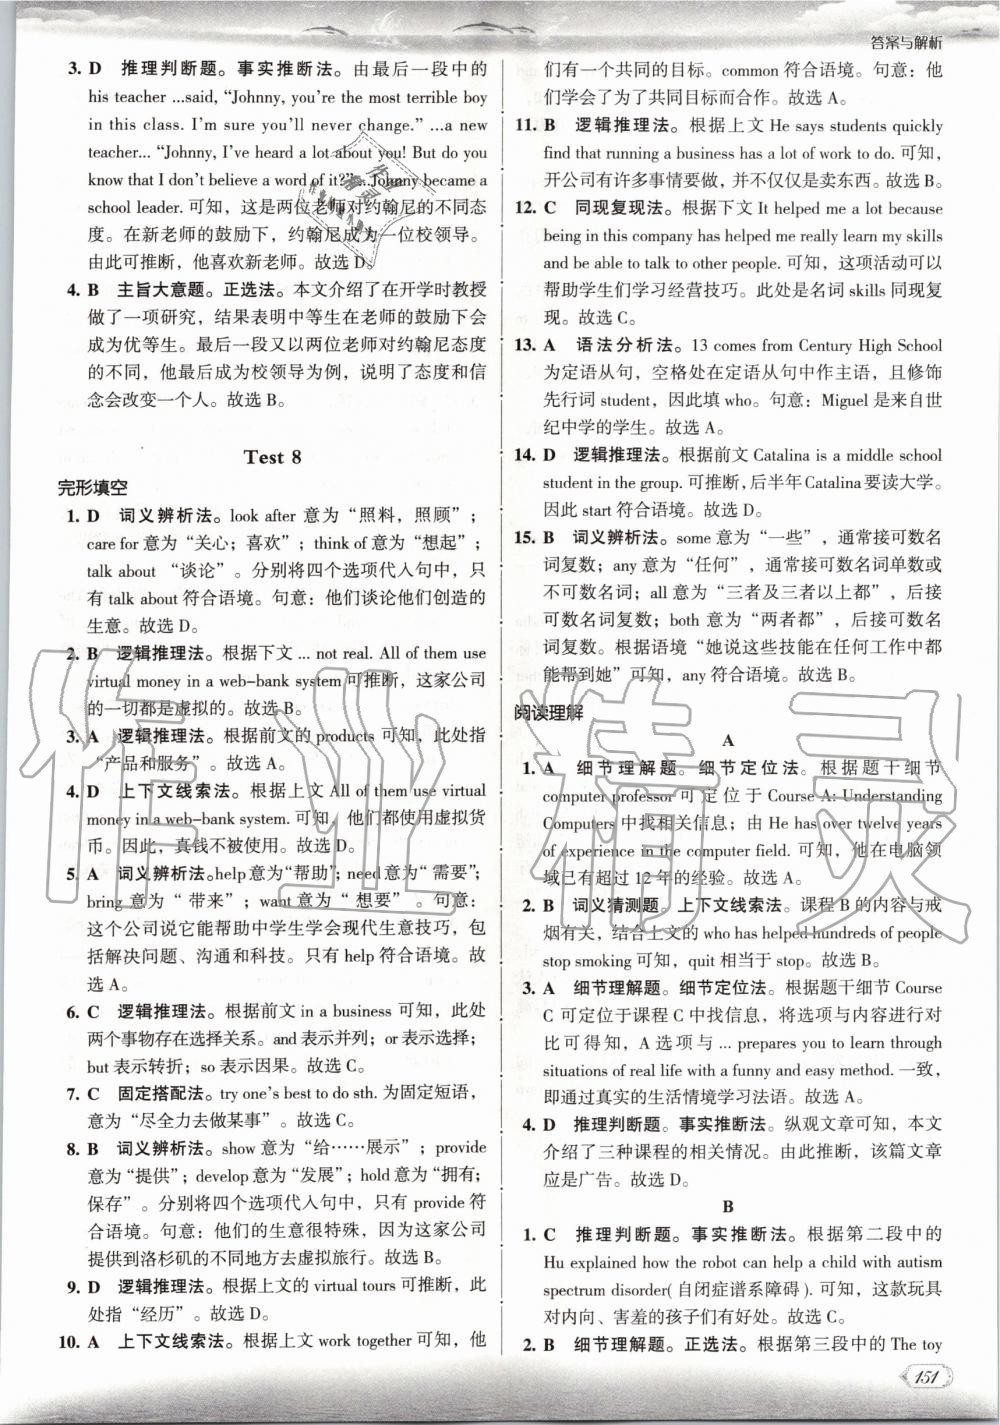 答案与解析
3. D 推理判断题。事实推断法。由最后一段中的
his teacher ...said, “Johnny, you're the most terrible boy
in this class. I'm sure you'll never change.” ...a new
teacher... “Johnny, I've heard a lot about you! But do you
know that I don't believe a word of it?”...Johnny became a
school leader. 可知，这是两位老师对约翰尼的不同态
度。在新老师的鼓励下，约翰尼成为一位校领导。
由此可推断，他喜欢新老师。故选 D。
4. B 主旨大意题。正选法。本文介绍了在开学时教授
做了一项研究，结果表明中等生在老师的鼓励下会
成为优等生。最后一段又以两位老师对约翰尼态度
的不同，他最后成为校领导为例，说明了态度和信
念会改变一个人。故选 B。
Test 8
完形填空
1. D 词义辨析法。look after 意为“照料，照顾”；
care for 意为“关心；喜欢”；think of 意为“想起”；
talk about “谈论”。分别将四个选项代入句中，只
有 talk about 符合语境。句意：他们谈论他们创造的
生意。故选 D。
2. B 逻辑推理法。根据下文 ... not real. All of them use
virtual money in a web-bank system 可推断，这家公司
的一切都是虚拟的。故选 B
3. A 逻辑推理法。根据前文的 products 可知，此处指
“产品和服务”。故选 A。
4. D 上下文线索法。根据上文 All of them use virtual
money in a web-bank system. 可知，他们都使用虚拟货
币。因此，真钱不被使用。故选 D。
5. A 词义辨析法。help 意为“帮助”；need 意为“需要”；
bring 意为“带来”；want 意为“想要”。句意：
这个公司说它能帮助中学生学会现代生意技巧，包
括解决问题、沟通和科技。只有 help 符合语境。故
选 A。
6. C 逻辑推理法。根据前文 in a business 可知，此处
两个事物存在选择关系。and 表示并列；or 表示选择；
but 表示转折；so 表示因果。故选 C。
7. C 固定搭配法。try one's best to do sth. 为固定短语，
意为“尽全力去做某事”。故选 C。
8. B 词义辨析法。show 意为“给……展示”；provide
意为“提供”；develop 意为“发展”；hold 意为“拥有；
保存”。分别将四个选项代入句中，只有 provide 符
合语境。句意：他们的生意很特殊，因为这家公司
提供到洛杉矶的不同地方去虚拟旅行。故选 B。
9. D 逻辑推理法。根据上文的 virtual tours 可推断，此
处指“经历”。故选 D。
10. A 上下文线索法。根据上文 work together 可知，他
们有一个共同的目标。common 符合语境。句意：他
们学会了为了共同目标而合作。故选 A。
11. B 逻辑推理法。根据上文 He says students quickly
find that running a business has a lot of work to do. 可知，
开公司有许多事情要做，并不仅仅是卖东西。故选 B。
12. C 同现复现法。根据下文 It helped me a lot because
being in this company has helped me really learn my skills
and be able to talk to other people. 可知，这项活动可以
帮助学生们学习经营技巧。此处是名词 skills 同现复
现。故选 C。
13. A 语法分析法。13 comes from Century High School
为定语从句，空格处在定语从句中作主语，且修饰
先行词 student，因此填 who。句意：Miguel 是来自世
纪中学的学生。故选 A。
14. D 逻辑推理法。根据前文 Catalina is a middle school
student in the group. 可推断，后半年 Catalina 要读大学。
因此 start 符合语境。故选 D。
15. B 词义辨析法。some 意为“一些”，通常接可数名
词复数；any 意为“任何”，通常接可数名词单数或
不可数名词；all 意为“三者及三者以上都”，后接
可数名词复数；both 意为“两者都”，后接可数名
词复数。根据语境“她说这些技能在任何工作中都
能帮到她”可知，any 符合语境。故选 B。
阅读理解
A
1. A 细节理解题。细节定位法。根据题干细节
computer professor 可定位于 Course A: Understanding
Computers 中找相关信息；由 He has over twelve years
of experience in the computer field. 可知，他在电脑领
域已有超过 12 年的经验。故选 A。
2. B 词义猜测题。上下文线索法。课程 B 的内容与戒
烟有关，结合上文的 who has helped hundreds of people
stop smoking 可知，quit 相当于 stop。故选 B。
3. A 细节理解题。细节定位法。根据题干细节 Course
C 可定位于课程 C 中找信息，将选项与内容进行对
比可得知，A 选项与 ... prepares you to learn through
situations of real life with a funny and easy method. 一致，
即通过真实的生活情境学习法语。故选 A。
4. D 推理判断题。事实推断法。纵观文章可知，本文
介绍了三种课程的相关情况。由此推断，该篇文章
应是广告。故选 D。
B
1. C 推理判断题。事实推断法。根据第二段中的
Hu explained how the robot can help a child with autism
spectrum disorder( 自闭症谱系障碍 ). 可知，这款玩具
对内向、害羞的孩子们有好处。故选 C。
2. B 细节理解题。正选法。根据第三段中的 The toy
151
作业精灵